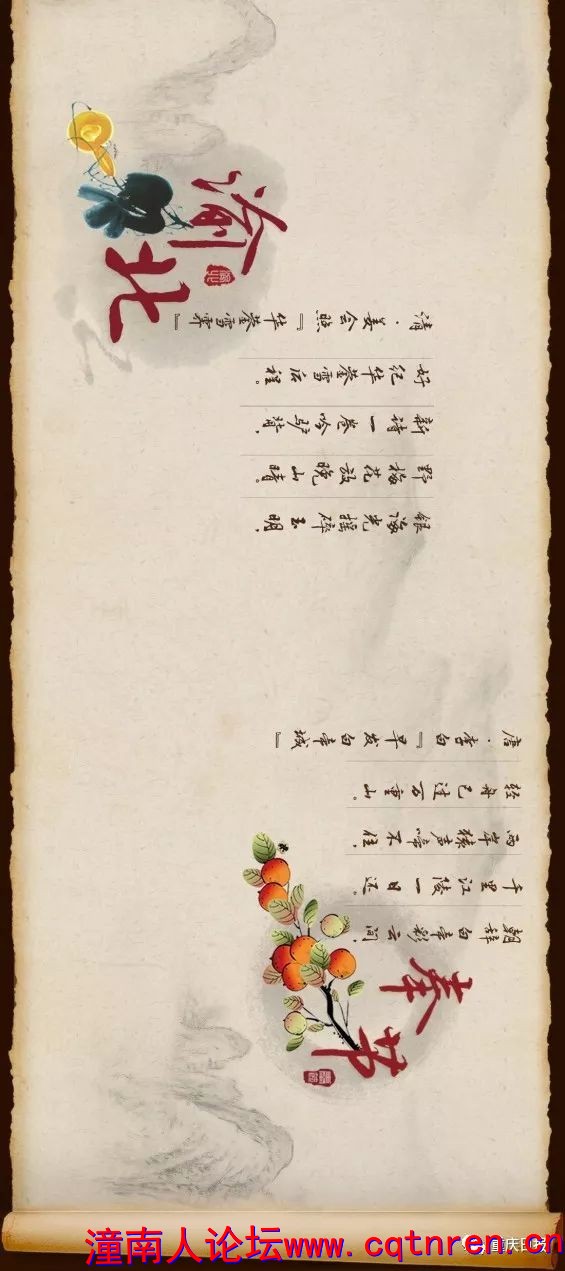 奉节
朝辞白帝彩云间，
千里江陵一日还。
两岸猿声啼不住，
轻舟已过万重山。
唐·李白『早发白帝城』
渝北
银海光摇碎玉明，
野梅花放晚山晴。
新诗一卷吟驴背，
好纪华蓥雪后程。
清·姜会照『华蓥雪霁』
重庆日报
潼南人论坛www.cqtnren.cn